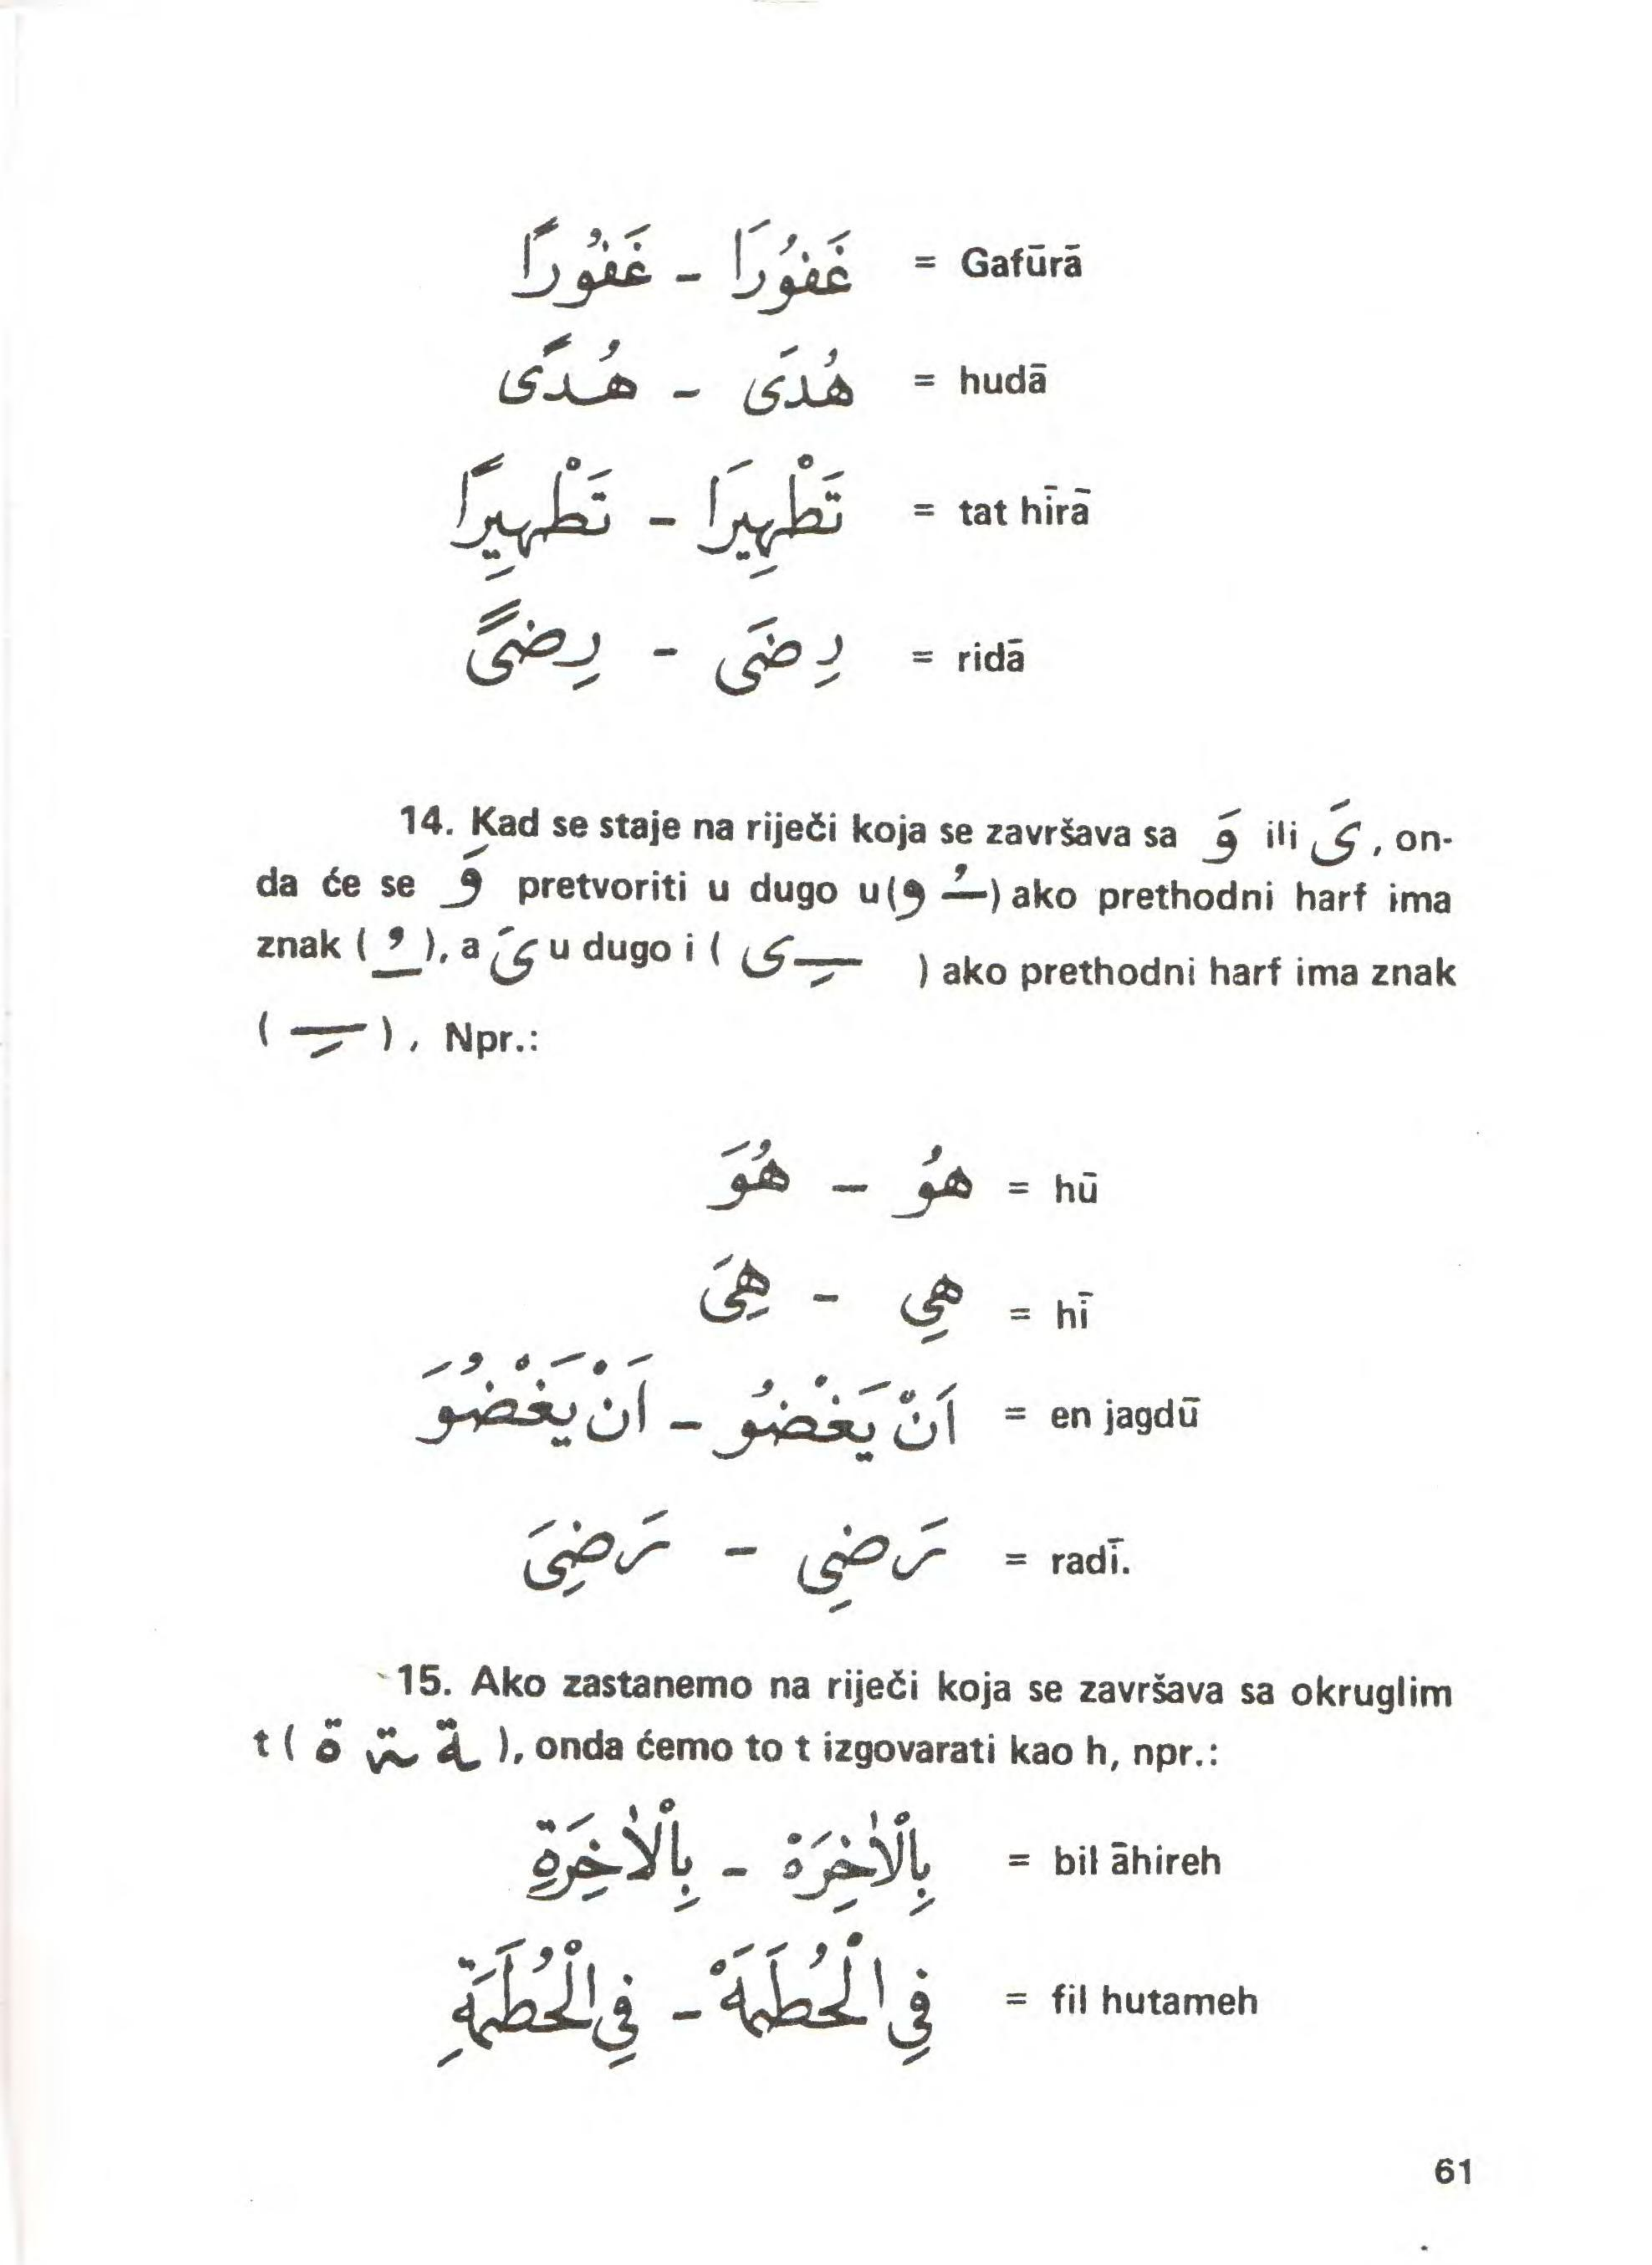 غَفُورًا - غَفُورَا = Gafūrā
هُدًى - هُدَى = hudā
تَطْهِيرًا - تَطْهِيرَا = tat hīrā
رِضىً - رِضَى = ridā
14. Kad se staje na riječi koja se završava sa وَ ili ىَ, on-
da će se وَ pretvoriti u dugo u(ـُ و) ako prethodni harf ima
znak ( ـُ ), a ىَ u dugo i ( ـِ ى ) ako prethodni harf ima znak
( ـِ ), Npr.:
هُوَ - هُو = hū
هِىَ - هِى = hī
اَنْ يَغْضُوَ - اَنْ يَغْضُو = en jagdū
رَضِىَ - رَضِى = radī.
15. Ako zastanemo na riječi koja se završava sa okruglim
t ( ة ـة ـة ), onda ćemo to t izgovarati kao h, npr.:
بِالْاٰخِرَةِ - بِالْاٰخِرَهْ = bil āhireh
فِى الْحُطَمَةِ - فِى الْحُطَمَهْ = fil hutameh
61